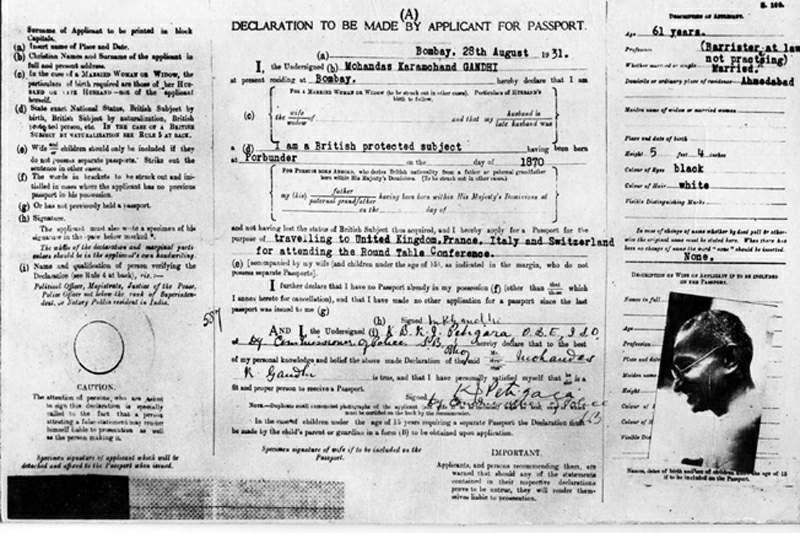 Surname of Applicant to be printed in block
Capitals.
(a) Insert name of Place and Date.
(b) Christian Names and Surname of the applicant in
full and present address.
(c) In the case of a MARRIED WOMAN OR WIDOW, the
particulars of birth required are those of her HUS-
BAND OR LATE HUSBAND—not of the applicant
herself.
(d) State exact National Status, British Subject by
birth, British Subject by naturalisation, British
protected person, etc. IN THE CASE OF A BRITISH
SUBJECT BY NATURALISATION SEE RULE 5 AT BACK.
(e) Wife and children should only be included if they
do not possess separate passports. Strike out the
sentence in other cases.
(f) The words in brackets to be struck out and ini-
tialled in cases where the applicant has no previous
passport in his possession.
(g) Or has not previously held a passport.
(h) Signature.
The applicant must also write a specimen of his
signature in the space below marked *.
The whole of the declaration and marginal parts
entries should be in the applicant's own handwriting.
(i) Name and qualification of person verifying the
Declaration (see Rule 4 at back), viz. :—
Political Officer, Magistrate, Justice of the Peace,
Police Officer not below the rank of Superinten-
dent, or Notary Public resident in India.
CAUTION.
The attention of persons, who are asked
to sign this declaration is specially
called to the fact that a person
attesting a false statement may render
himself liable to prosecution as well
as the person making it.
Specimen signature of applicant which will be
detached and affixed to the Passport when issued.
(A)
DECLARATION TO BE MADE BY APPLICANT FOR PASSPORT.
(a) Bombay, 28th August 1931.
I, the Undersigned (b) Mohandas Karamchand GANDHI
at present residing at Bombay. hereby declare that I am
FOR A MARRIED WOMAN OR WIDOW (to be struck out in other cases). Particulars of HUSBAND'S
birth to follow.
(c) the wife widow of and that my husband is late husband was
a (d) I am a British protected subject having been born
at Porbunder on the day of 1870
FOR PERSONS BORN ABROAD, who derive British nationality from a father or paternal grandfather
born within His Majesty's Dominions. (To be struck out in other cases).
my (his) father paternal grandfather having been born within His Majesty's Dominions at
on the day of
and not having lost the status of British Subject thus acquired, and I hereby apply for a Passport for the
purpose of travelling to United Kingdom, France, Italy and Switzerland
for attending the Round Table Conference.
(e) [accompanied by my wife (and children under the age of 15), as indicated in the margin, who do not
possess separate Passports].
I further declare that I have no Passport already in my possession (f) (other than that those which
I annex hereto for cancellation), and that I have made no other application for a passport since the last
passport was issued to me (g)
(h) Signed MKGandhi
587
AND I, the Undersigned (i) K. B. K. J. Petigara O.B.E, I.S.O
Dy Commissioner of Police S.B, Bby hereby declare that to the best
of my personal knowledge and belief the above made Declaration of the said Mr. Mohandas
K. Gandhi is true, and that I have personally satisfied myself that he is a
fit and proper person to receive a Passport.
Signed K. J. Petigara
Dy Commissioner of Police
S B
In the case of children under the age of 15 years requiring a separate Passport the Declaration must
be made by the child's parent or guardian in a form (B) to be obtained upon application.
Specimen signature of wife if to be included on the
Passport.
IMPORTANT.
Applicants, and persons recommending them, are
warned that should any of the statements
contained in their respective declarations
prove to be untrue, they will render them-
selves liable to prosecution.
DESCRIPTION OF APPLICANT.
Age 61 years.
Profession (Barrister at law
not practising)
Whether married or single Married.
Domicile or ordinary place of residence Ahmedabad
Maiden name of widow or married woman
Place and date of birth
Height 5 feet 4 inches
Colour of Eyes black
Colour of Hair white
Visible Distinguishing Marks
In case of change of name whether by deed poll or other-
wise the original name must be stated here. When there has
been no change of name the word "none" should be inserted.
None.
DESCRIPTION OF WIFE OF APPLICANT IF TO BE INCLUDED
ON THE PASSPORT.
Name in full
Age
Profession
Place and date
Maiden name
Height
Colour of
Colour of
Visible Dis